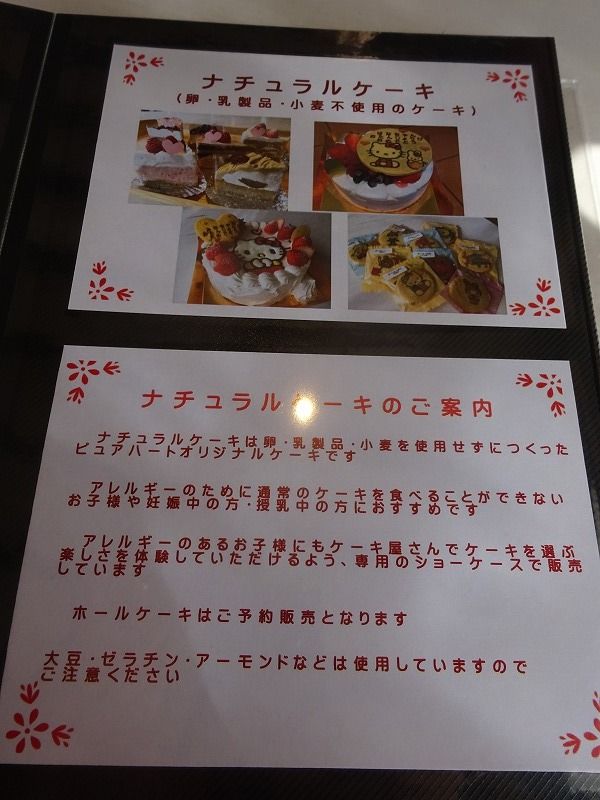 ナチュラルケーキ
(卵・乳製品・小麦不使用のケーキ)
ナチュラルケーキのご案内
ナチュラルケーキは卵・乳製品・小麦を使用せずにつくった
ピュアハートオリジナルケーキです
アレルギーのために通常のケーキを食べることができない
お子様や妊娠中の方・授乳中の方におすすめです
アレルギーのあるお子様にもケーキ屋さんでケーキを選ぶ
楽しさを体験していただけるよう、専用のショーケースで販売
しています
ホールケーキはご予約販売となります
大豆・ゼラチン・アーモンドなどは使用していますので
ご注意ください